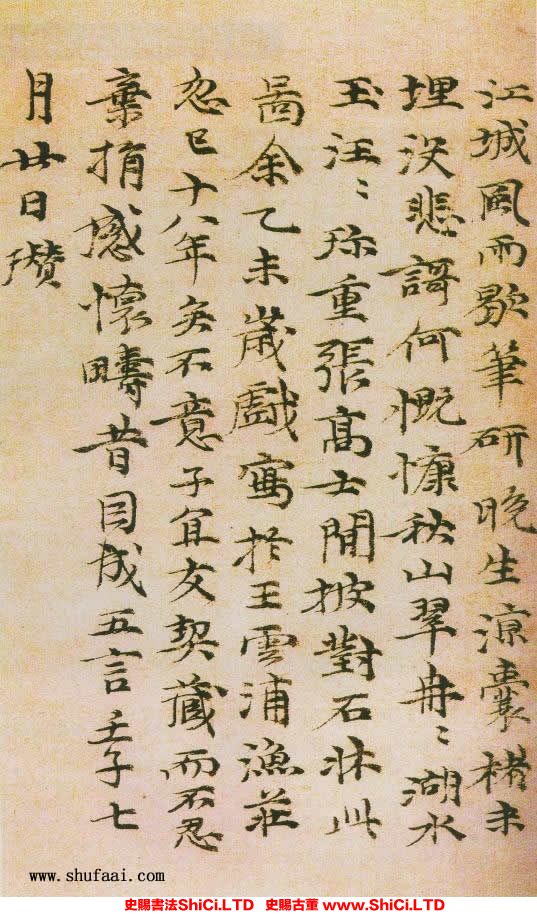 江城風雨歇筆研晚生涼囊楮未
埋没悲謌何慨慷秋山翠冉〻湖水
玉汪〻珎重張高士閒披對石牀此
啚余乙未歲戲寫於王雲浦漁莊
忽已十八年矣不意子宜友契藏而不忍
棄捐感懷疇昔因成五言壬子七
月廿日瓚
www.shufaai.com
史賜書法ShiCi.LTD 史賜古董 www.ShiCi.LTD